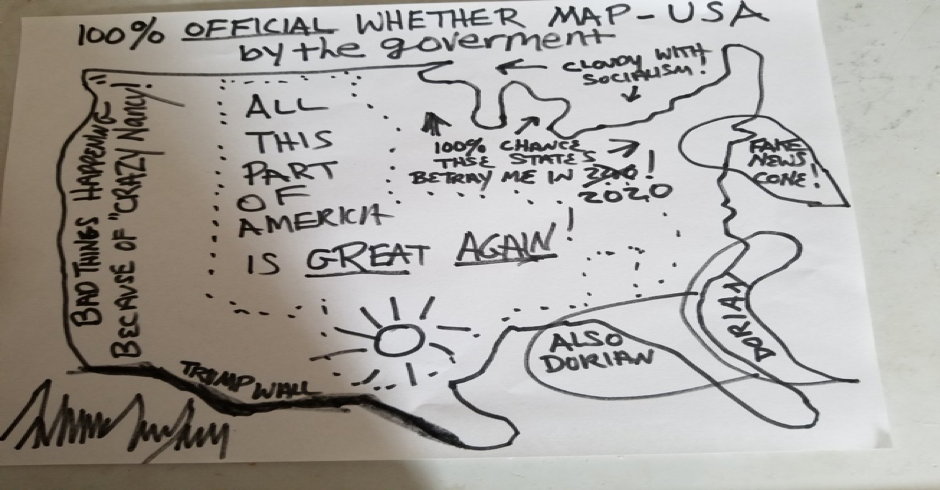 100% OFFICIAL WHETHER MAP - USA
by the goverment
CLOUDY WITH
SOCIALISM!
BAD THINGS HAPPENING
BECAUSE OF "CRAZY Nancy!
ALL
THIS
PART
OF
AMERICA
IS GREAT AGAIN!
100% CHANCE
THSE STATES
BETRAY ME IN !
2020
FAKE
NEWS
CONE!
DORIAN
ALSO
DORIAN
TRUMP WALL